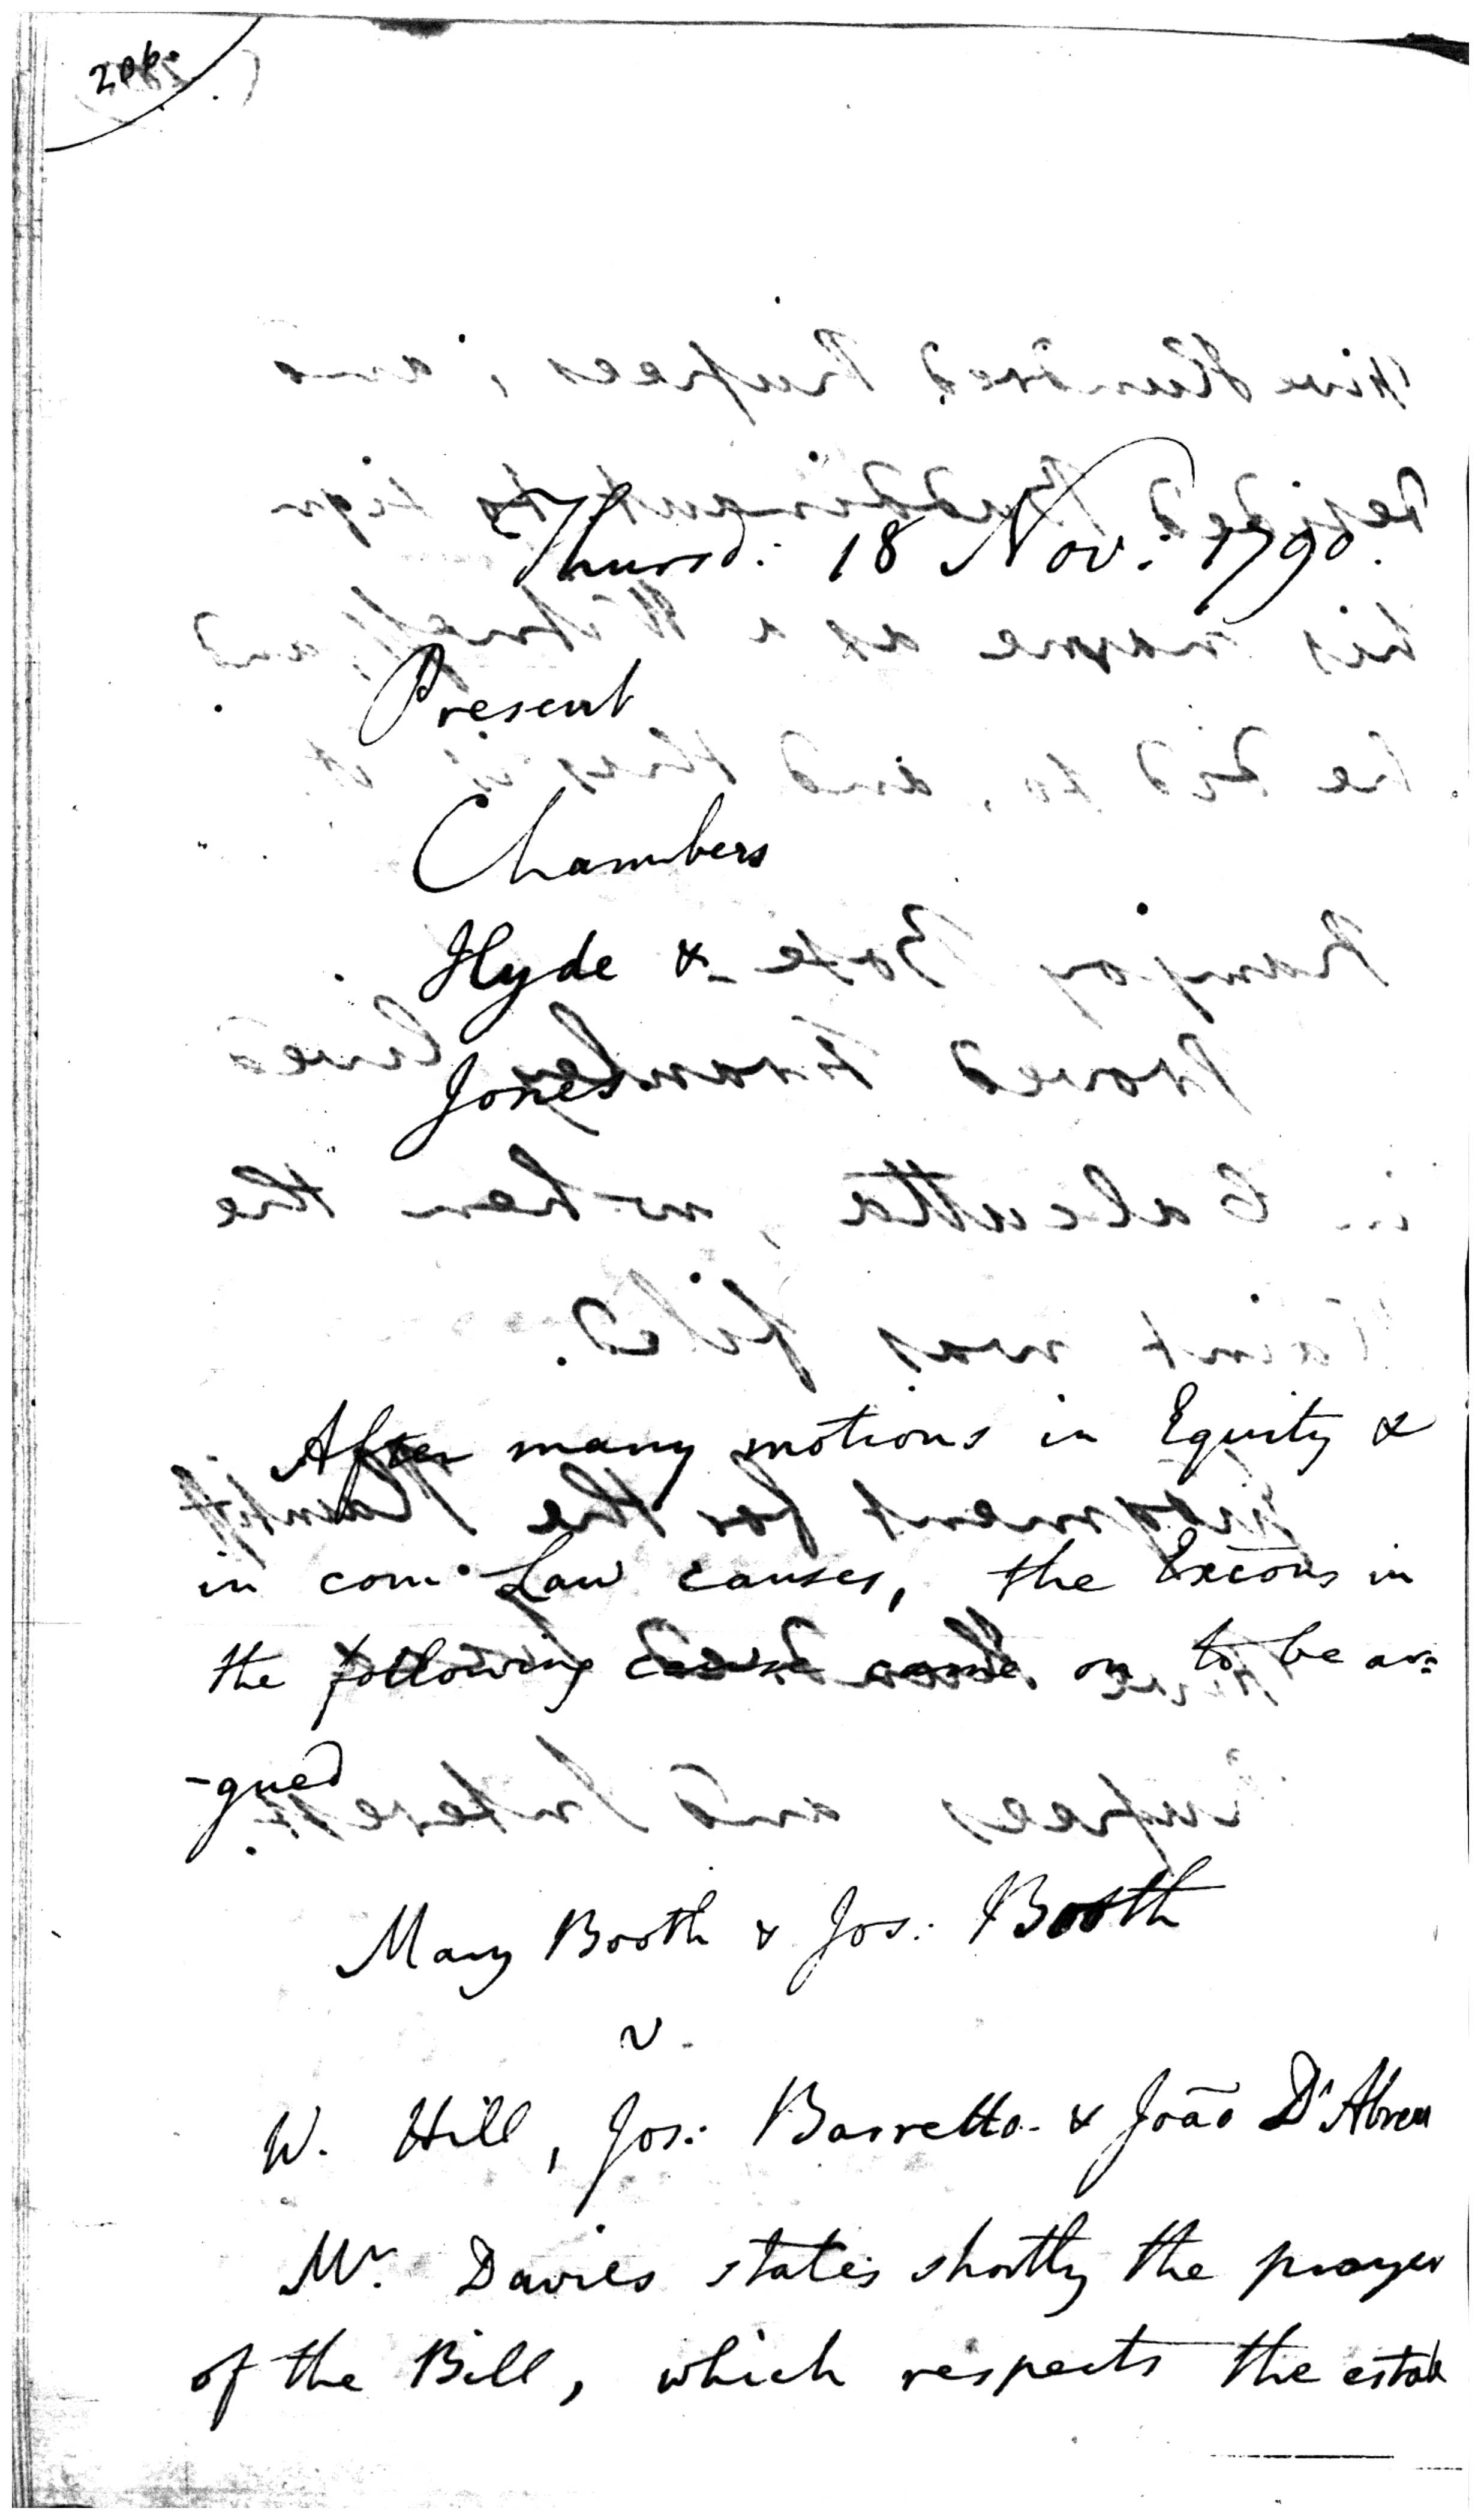 206.
Thursd. 18 Nov. 1790.
Present
Chambers
Hyde &
Jones
After many motions in Equity &
in com. Law causes, the Excōns in
the following cause came on to be ar=
-gued
Mary Booth & Jos: Booth
v.
W. Hill, Jos: Barretto & João D'Abreu
Mr. Davies states shortly the prayer
of the Bill, which respects the estate